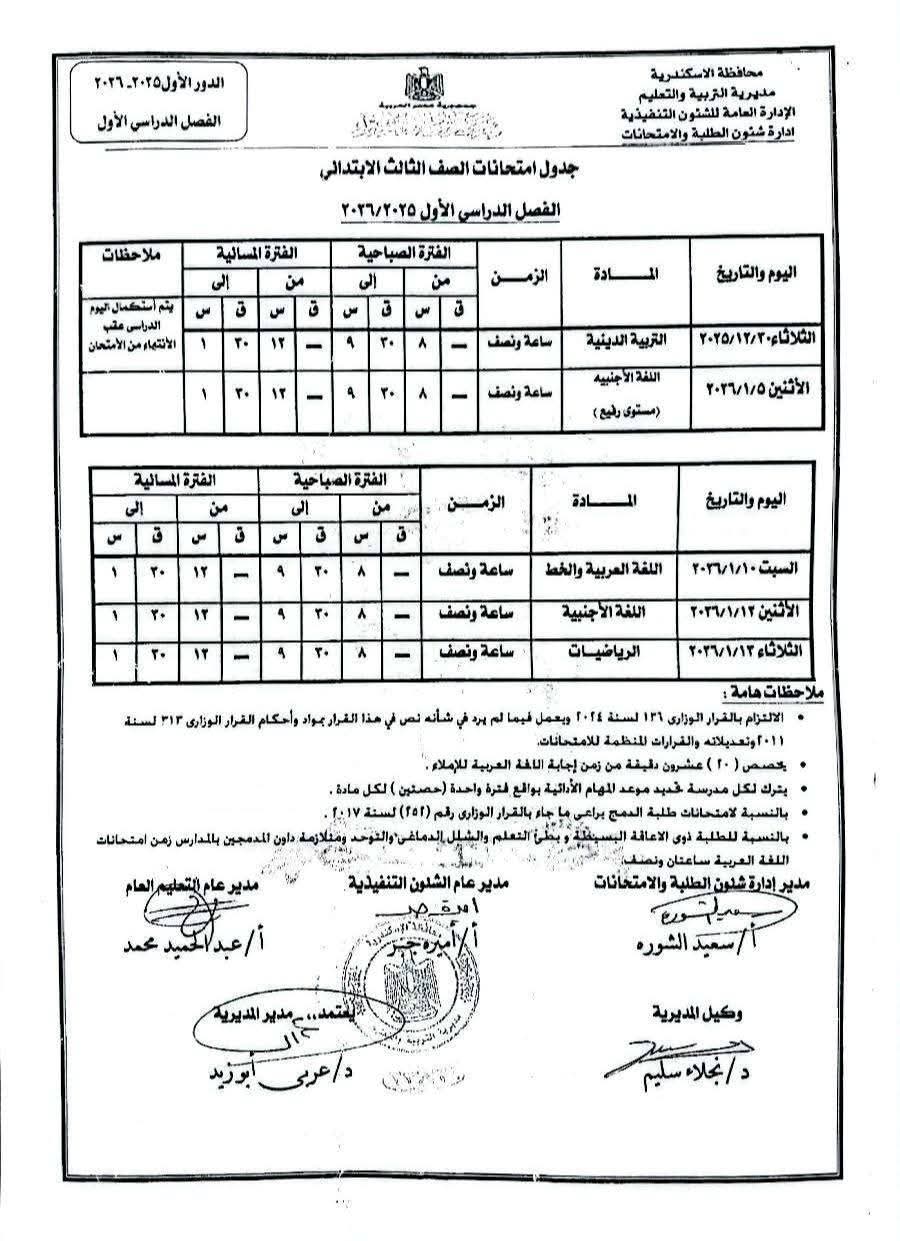 محافظة الاسكندرية
مديرية التربية والتعليم
الإدارة العامة للشئون التنفيذية
ادارة شئون الطلبة والامتحانات
جمهورية مصر العربية
الدور الأول ٢٠٢٥ـ ٢٠٢٦
الفصل الدراسي الأول
جدول امتحانات الصف الثالث الابتدائي
الفصل الدراسي الأول ٢٠٢٦/٢٠٢٥
اليوم والتاريخ المــــادة الزمــن الفترة الصباحية الفترة المسائية ملاحظات
من إلى من إلى
ق س ق س ق س ق س
الثلاثاء ٢٠٢٥/١٢/٣٠ التربية الدينية ساعة ونصف — ٨ ٣٠ ٩ — ١٢ ٣٠ ١ يتم أستكمال اليوم الدراسى عقب الأنتهاء من الأمتحان
الأثنين ٢٠٢٦/١/٥ اللغة الأجنبيه (مستوى رفيع) ساعة ونصف — ٨ ٣٠ ٩ — ١٢ ٣٠ ١
اليوم والتاريخ المــــادة الزمــــن الفترة الصباحية الفترة المسائية
من إلى من إلى
ق س ق س ق س ق س
السبت ٢٠٢٦/١/١٠ اللغة العربية والخط ساعة ونصف — ٨ ٣٠ ٩ — ١٢ ٣٠ ١
الأثنين ٢٠٢٦/١/١٢ اللغة الأجنبية ساعة ونصف — ٨ ٣٠ ٩ — ١٢ ٣٠ ١
الثلاثاء ٢٠٢٦/١/١٣ الرياضيـات ساعة ونصف — ٨ ٣٠ ٩ — ١٢ ٣٠ ١
ملاحظات هامة :
• الالتزام بالقرار الوزارى ١٣٦ لسنة ٢٠٢٤ ويعمل فيما لم يرد في شأنه نص في هذا القرار بمواد وأحكام القرار الوزارى ٣١٣ لسنة
٢٠١١ وتعديلاته والقرارات المنظمة للامتحانات.
• يخصص (٢٠) عشرون دقيقة من زمن إجابة اللغة العربية للإملاء .
• يترك لكل مدرسة تحديد موعد المهام الأدائية بواقع فترة واحدة (حصتين) لكل مادة .
• بالنسبة لامتحانات طلبة الدمج يراعى ما جاء بالقرار الوزارى رقم (٢٥٢) لسنة ٢٠١٧ .
• بالنسبة للطلبة ذوى الاعاقة البسيطة و بطئ التعلم والشلل الدماغى والتوحد ومتلازمة داون المدمجين بالمدارس زمن امتحانات
اللغة العربية ساعتان ونصف.
مدير إدارة شئون الطلبة والامتحانات مدير عام الشئون التنفيذية مدير عام التعليم العام
أ/ سعيد الشوره أ/ أميره جبر أ/ عبد الحميد محمد
وكيل المديرية يعتمد،، مدير المديرية
د/ نجلاء سليم د/ عربى أبو زيد